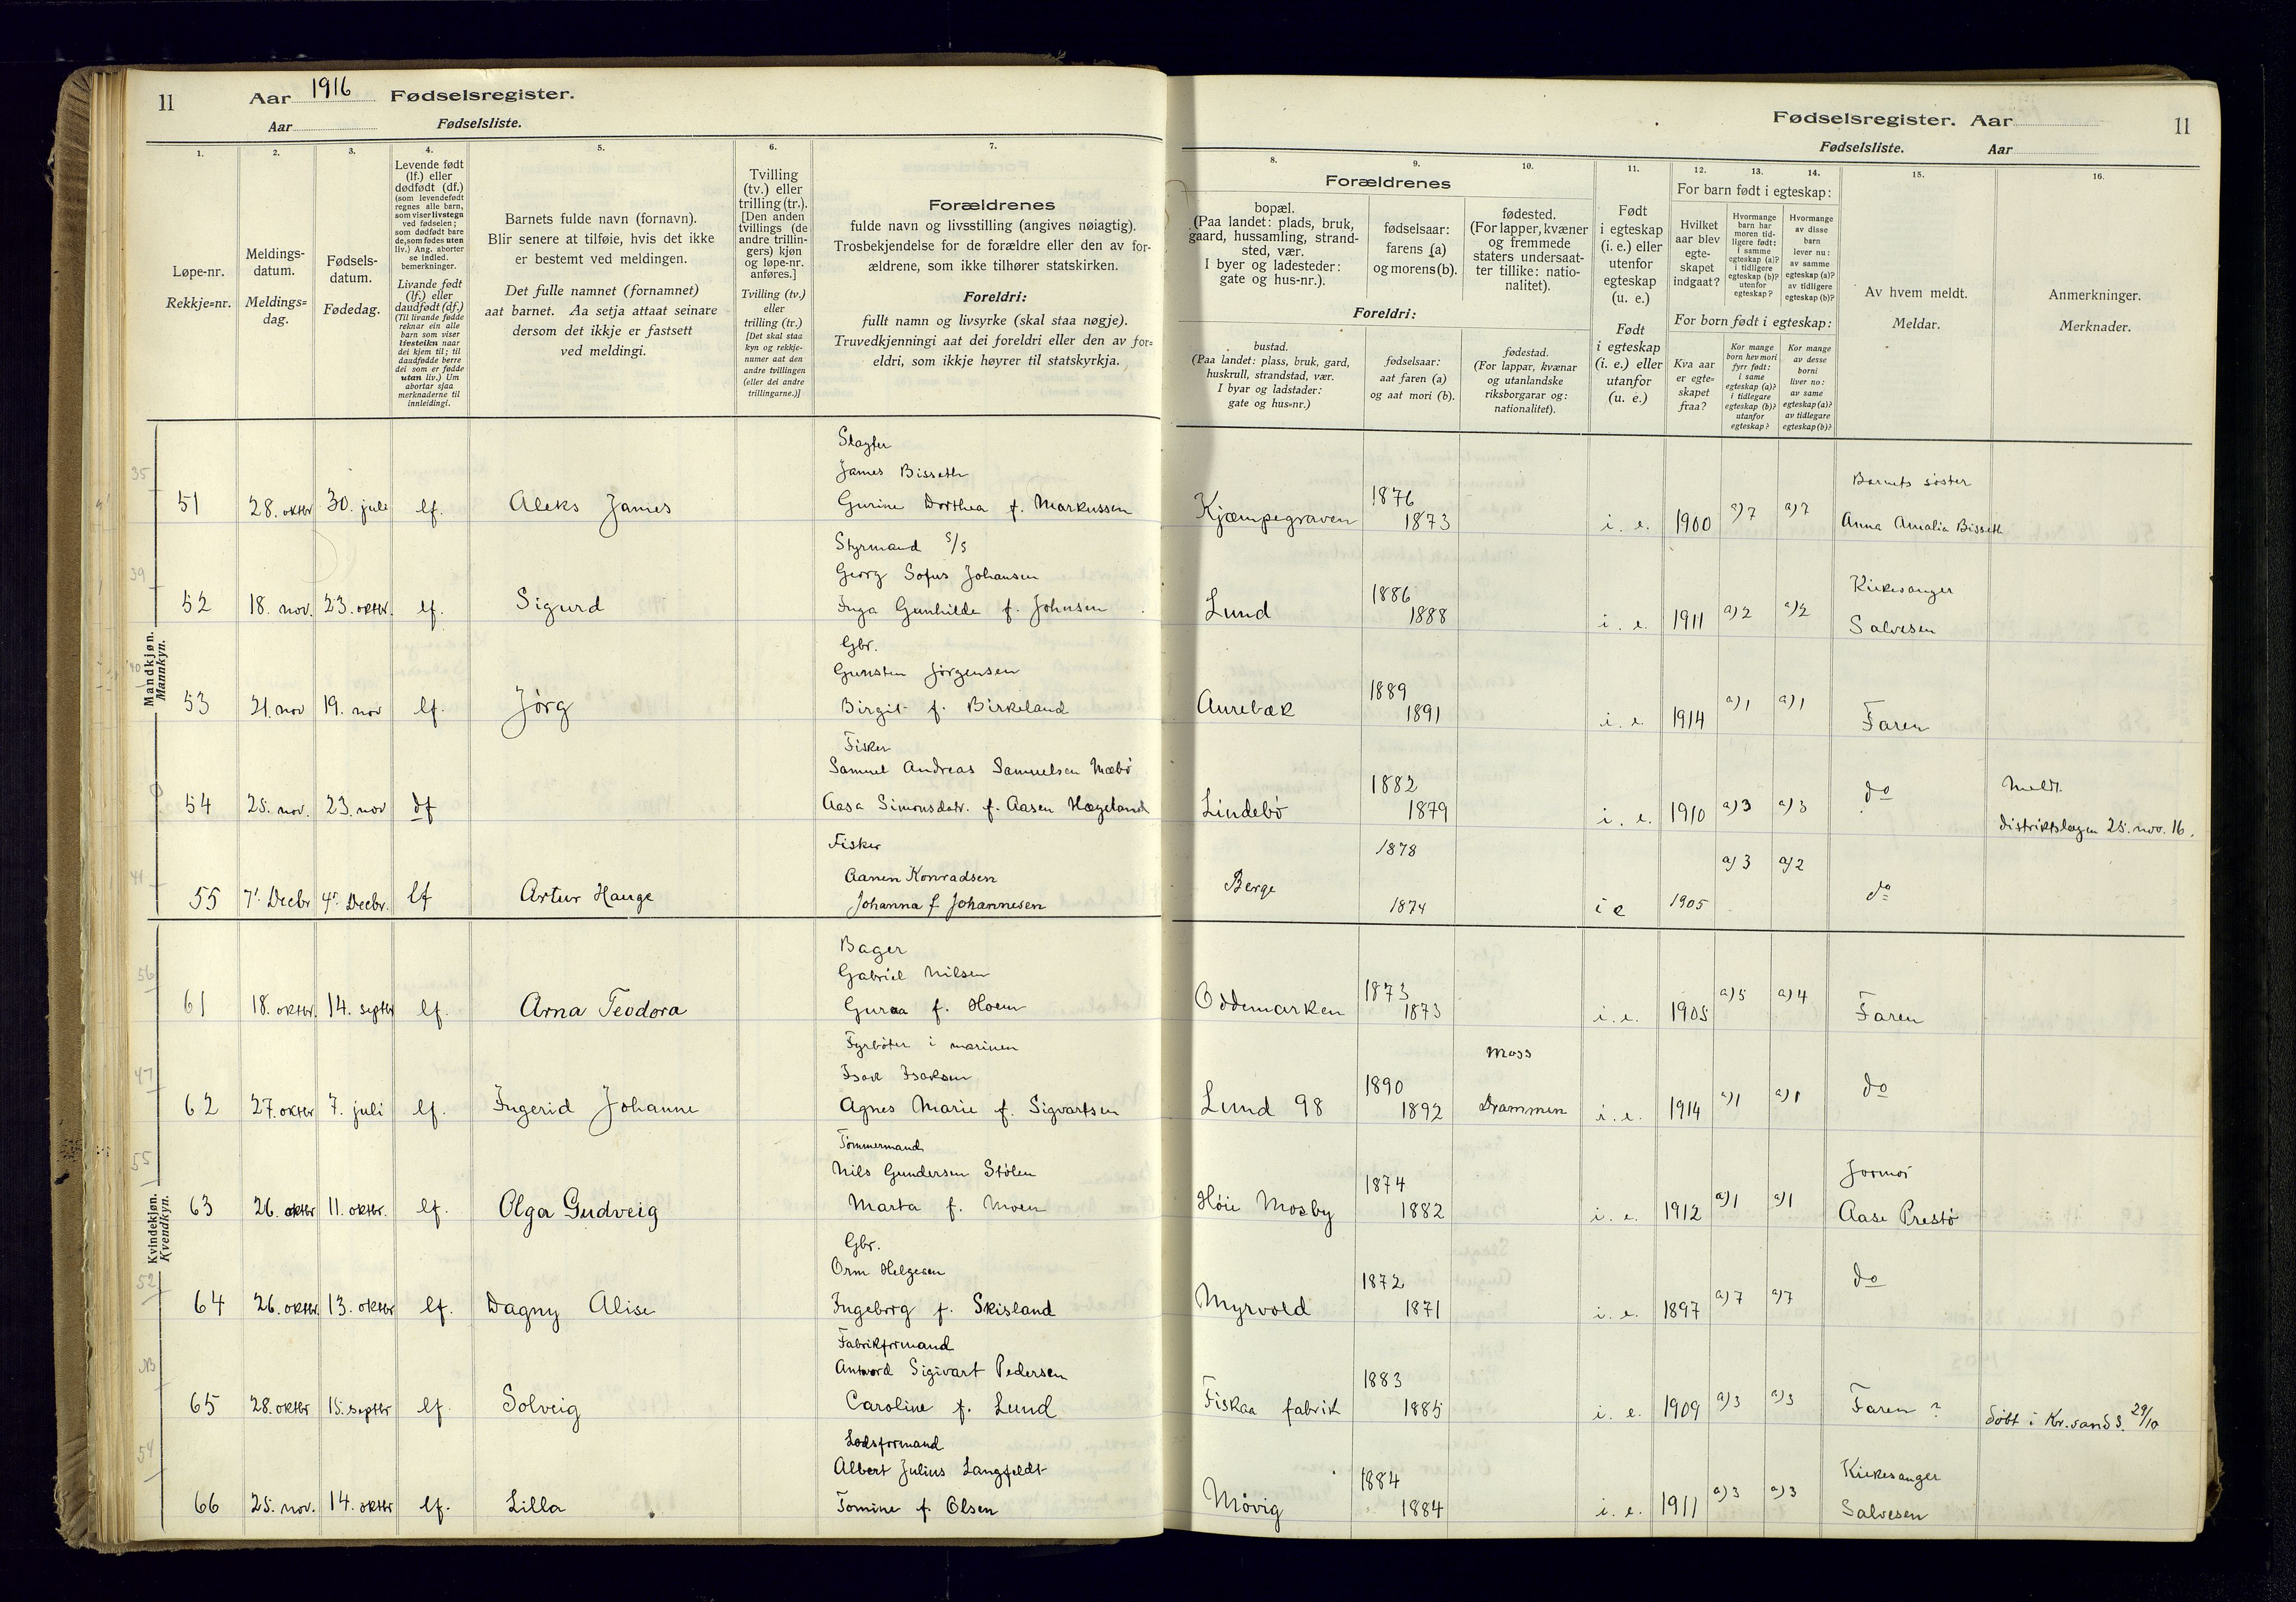 11 Aar 1916 Fødselsregister.
Aar Fødselsliste.
Fødselsregister. Aar 11
Fødselsliste. Aar
1.
Løpe-nr.
Rekkje=nr.
2.
Meldings-
datum.
Meldings=
dag.
3.
Fødsels-
datum.
Fødedag.
4.
Levende født
(lf.) eller
dødfødt (df.)
(som levendefødt
regnes alle barn,
som viser livstegn
ved fødselen;
som dødfødt bare
de, som fødes uten
liv.) Ang. aborter
se indled.
bemerkninger.
Livande født
(lf.) eller
daudfødt (df.)
(Til livande fødde
reknar ein alle
born som viser
livsteikn naar
dei kjem til; til
daudfødde berre
dei som er fødde
utan liv.) Um
abortar sjaa
merknaderne til
innleidingi.
5.
Barnets fulde navn (fornavn).
Blir senere at tilføie, hvis det ikke
er bestemt ved meldingen.
Det fulle namnet (fornamnet)
aat barnet. Aa setja attaat seinare
dersom det ikkje er fastsett
ved meldingi.
6.
Tvilling
(tv.) eller
trilling (tr.).
[Den anden
tvillings (de
andre trillin-
gers) kjøn
og løpe-nr.
anføres.]
Tvilling (tv.)
eller
trilling (tr.)
[Det skal staa
kyn og rekkje-
numer aat den
andre tvillingen
(eller dei andre
trillingarne.)]
7.
Forældrenes
fulde navn og livsstilling (angives nøiagtig).
Trosbekjendelse for de forældre eller den av for-
ældrene, som ikke tilhører statskirken.
Foreldri:
fullt namn og livsyrke (skal staa nøgje).
Truvedkjenningi aat dei foreldri eller den av for=
eldri, som ikkje høyrer til statskyrkja.
Forældrenes
8.
bopæl.
(Paa landet: plads, bruk,
gaard, hussamling, strand-
sted, vær.
I byer og ladesteder:
gate og hus-nr.).
Foreldri:
bustad.
(Paa landet: plass, bruk, gard,
huskrull, strandstad, vær.
I byar og ladstader:
gate og hus=nr.)
9.
fødselsaar:
farens (a)
og morens (b).
fødselsaar:
aat faren (a)
og aat mori (b).
10.
fødested.
(For lapper, kvæner
og fremmede
staters undersaat-
ter tillike: natio-
nalitet).
fødestad.
(For lappar, kvænar
og utanlandske
riksborgarar og:
nationalitet).
11.
Født
i egteskap
(i. e.) eller
utenfor
egteskap
(u. e.)
Født
i egteskap
(i. e.) eller
utanfor
(u. e.)
12. 13. 14.
For barn født i egteskap:
Hvilket
aar blev
egte-
skapet
indgaat?
Hvormange
barn har
moren tid-
ligere født:
i samme
egteskap (a)?
i tidligere
egteskap (b)?
utenfor
egteskap?
Hvormange
av disse
barn
lever nu:
av samme
egteskap (a)?
av tidligere
egteskap (b)?
For born født i egteskap:
Kva aar
er egte=
skapet
fraa?
Kor mange
born hev mori
fyrr født:
i same
egteskap (a)?
i tidlegare
egteskap (b)?
utanfor
egteskap?
Kor mange
av desse
borni
liver no:
av same
egteskap (a)?
av tidlegare
egteskap (b)?
15.
Av hvem meldt.
Meldar.
16.
Anmerkninger.
Merknader.
Mandkjøn.
Mannkyn.
35
Slagter
James Bisseth
51 28. oktbr 30. juli lf. Aleks James Gurine Dorthea f. Markussen Kjæmpegraven 1876 1873 i. e. 1900 a) 7 a) 7 Barnets søster
Anna Amalia Bisseth
39
Styrmand s/s
Georg Sofus Johansen
52 18. nov. 23. oktbr. lf. Sigurd Inga Gunhilde f. Johnsen Lund 1886 1888 i. e. 1911 a) 2 a) 2 Kirkesanger
Salvesen
40
Gbr.
Gunsten Jørgensen
53 21. nov 19. nov lf. Jørg Birgit f. Birkeland Aurebæk 1889 1891 i. e. 1914 a) 1 a) 1 Faren
Fisker
Samuel Andreas Samuelsen Mæbø
54 25. nov. 23. nov df Aasa Simonsdatr. f. Aasen Hægeland Lindebø 1882 1879 i. e. 1910 a) 3 a) 3 do Meldt.
distriktslægen 25. nov. 16.
41
Fisker
Aanen Konradsen
55 7' Decbr 4' Decbr. lf Artur Hauge Johanna f Johannesen Berge 1878 1874 i e 1905 a) 3 a) 2 do
Kvindekjøn.
Kvendkyn.
56
Bager
Gabriel Nilsen
61 18. oktbr. 14. septbr lf. Arna Teodora Guraa f. Hoem Oddemarken 1873 1873 i. e. 1905 a) 5 a) 4 Faren
47
Fyrbøter i marinen
Isak Isaksen Moss
62 27. oktbr 7. juli lf. Ingerid Johanne Agnes Marie f. Sigvartsen Lund 98 1890 1892 Drammen i. e. 1914 a) 1 a) 1 do
55
Tømmermand
Nils Gundersen Stølen
63 26. oktbr 11. oktbr. lf. Olga Gudveig Marta f. Moen Høie Mosby 1874 1882 i. e. 1912 a) 1 a) 1 Jormor
Aase Prestø
52
Gbr.
Orm Helgesen
64 26. oktbr. 13. oktbr lf. Dagny Alise Ingeborg f. Skisland Myrvold 1872 1871 i. e. 1897 a) 7 a) 7 do
Fabrikformand
Antword Sigivart Pedersen
65 28. oktbr. 15. septbr lf. Solveig Caroline f. Lund Fiskaa fabrik 1883 1885 i. e. 1909 a) 3 a) 3 Faren ? døbt i Kr.sand S. 29/10
54
Lodsformand
Albert Julius Langfeldt
66 25. nov. 14. oktbr lf. Lilla Tomine f. Olsen Møvig 1884 1884 i. e. 1911 a) 3 a) 3 Kirkesanger
Salvesen